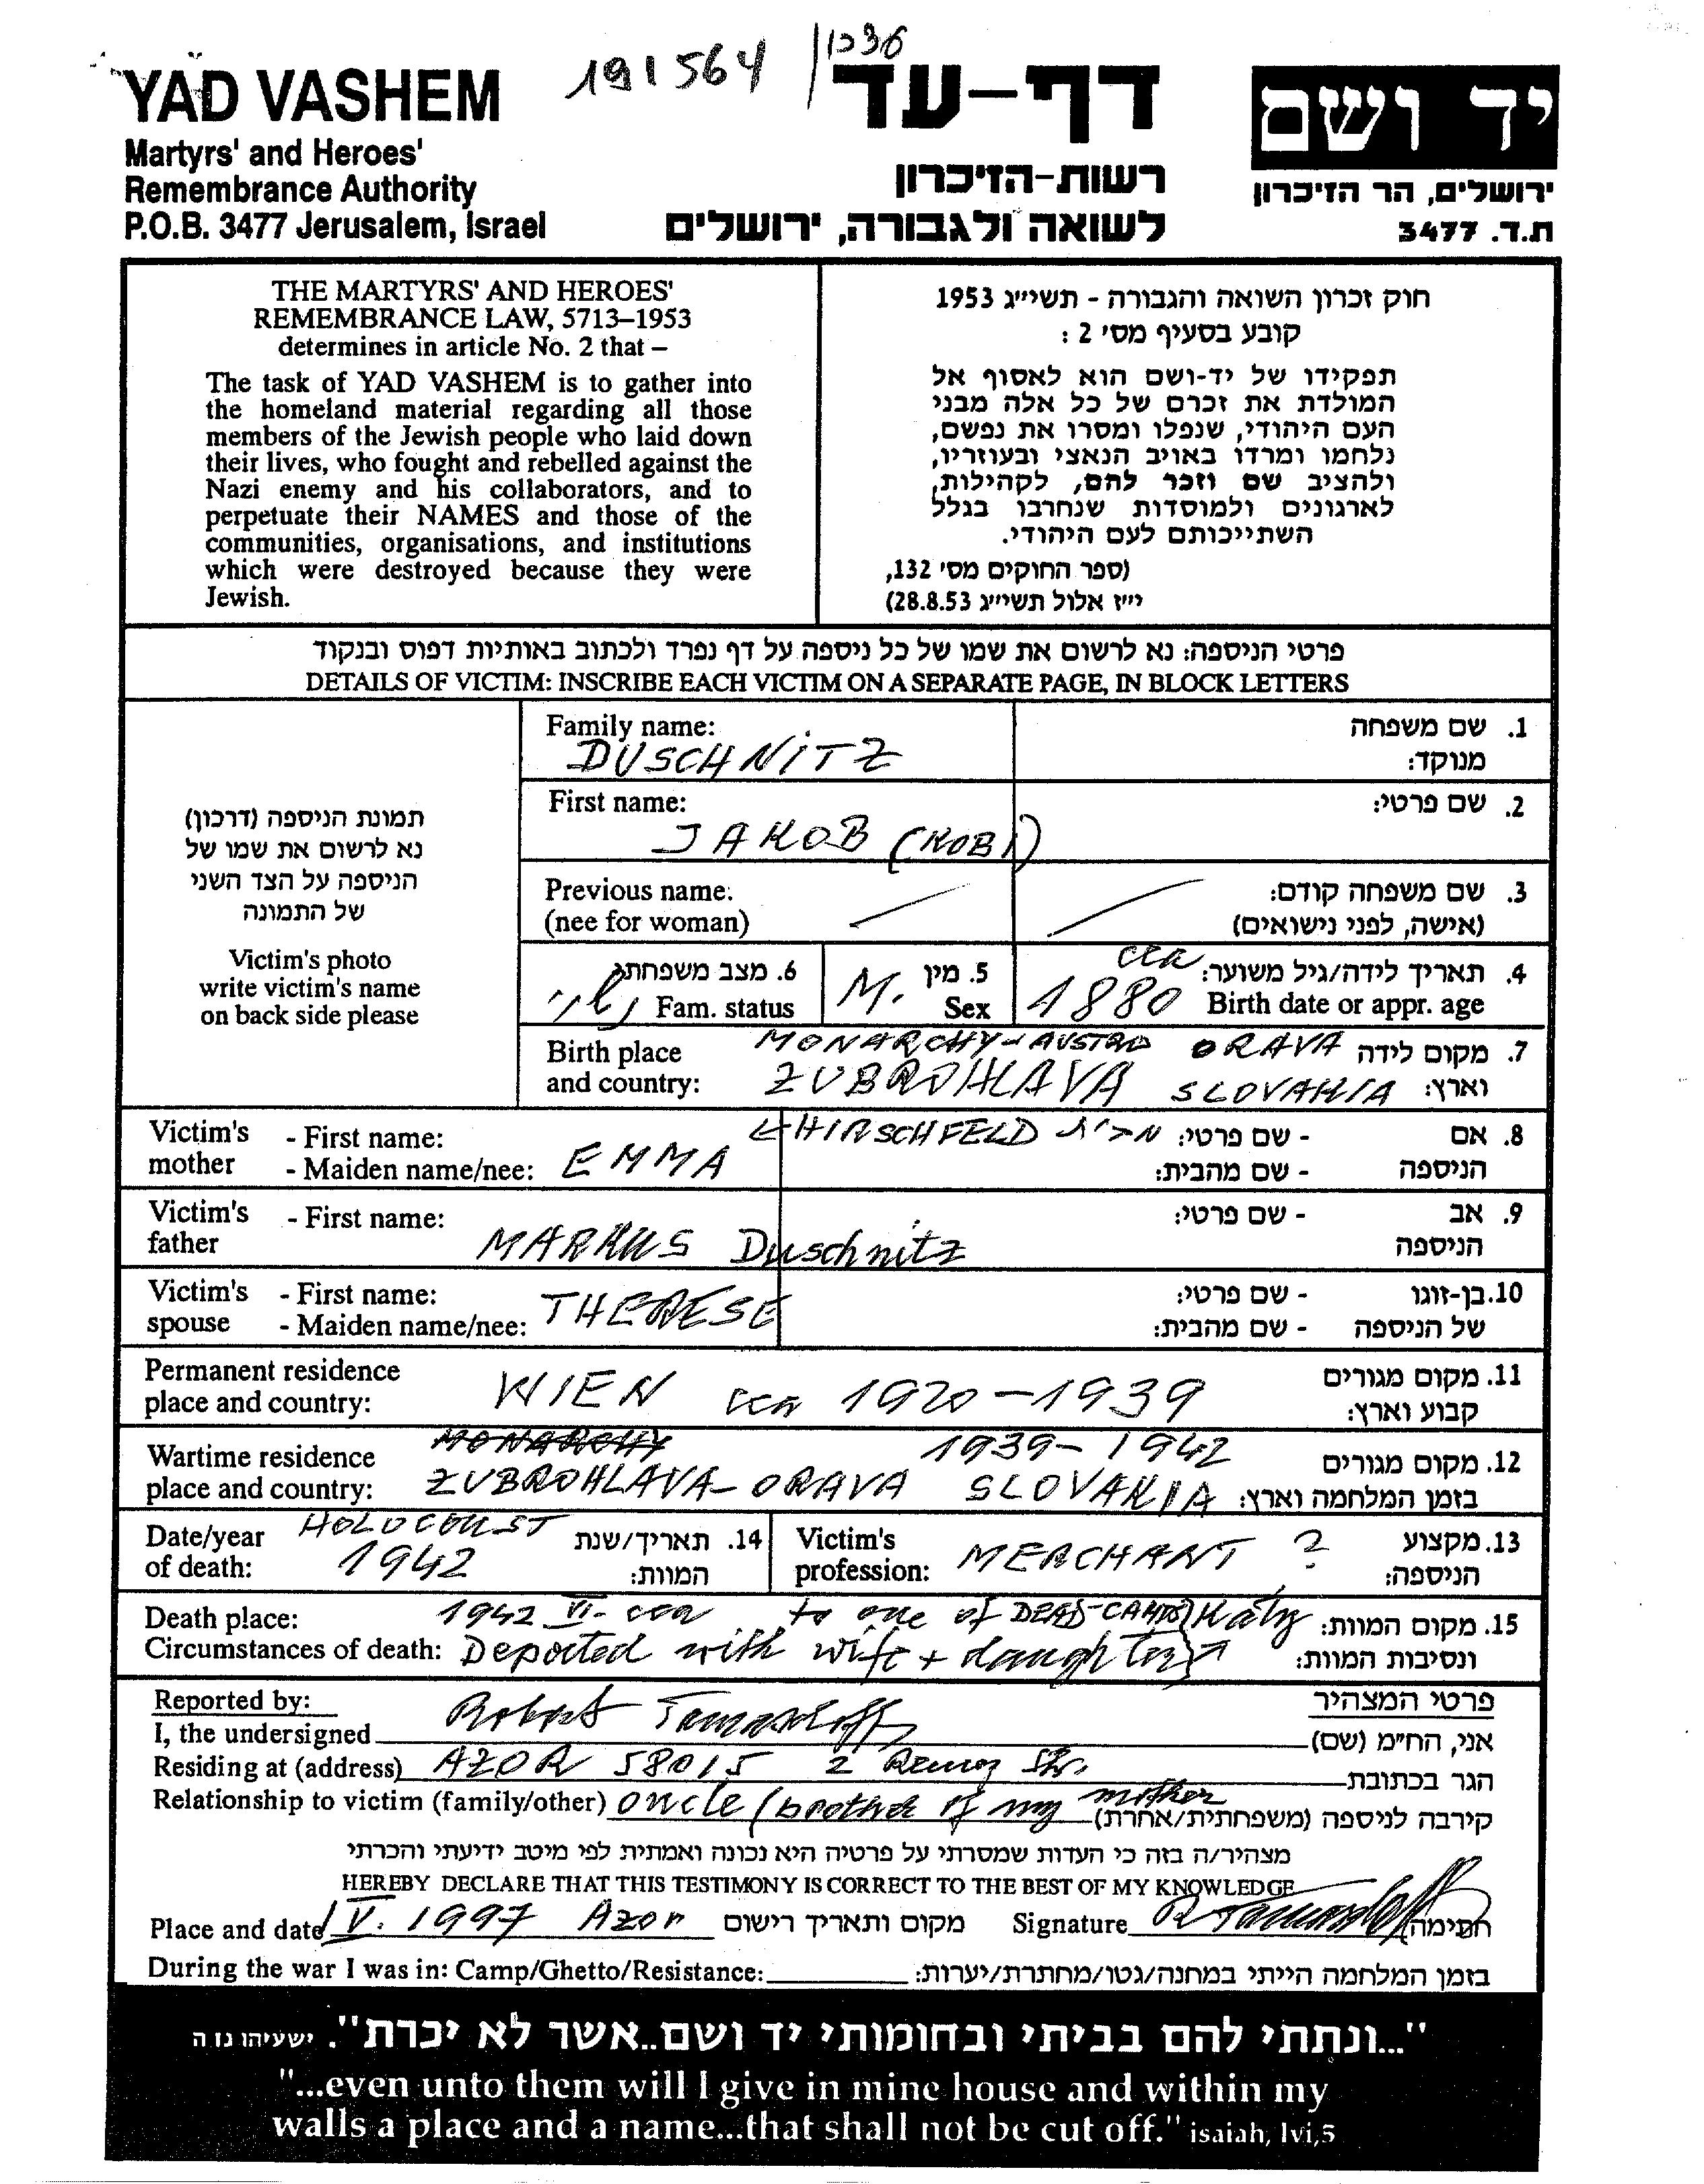 191564 /1036
YAD VASHEM
Martyrs' and Heroes'
Remembrance Authority
P.O.B. 3477 Jerusalem, Israel
דף-עד
רשות-הזיכרון
לשואה ולגבורה, ירושלים
יד ושם
ירושלים, הר הזיכרון
ת.ד. 3477
THE MARTYRS' AND HEROES'
REMEMBRANCE LAW, 5713–1953
determines in article No. 2 that –
The task of YAD VASHEM is to gather into
the homeland material regarding all those
members of the Jewish people who laid down
their lives, who fought and rebelled against the
Nazi enemy and his collaborators, and to
perpetuate their NAMES and those of the
communities, organisations, and institutions
which were destroyed because they were
Jewish.
חוק זכרון השואה והגבורה - תשי״ג 1953
קובע בסעיף מס׳ 2 :
תפקידו של יד-ושם הוא לאסוף אל
המולדת את זכרם של כל אלה מבני
העם היהודי, שנפלו ומסרו את נפשם,
נלחמו ומרדו באויב הנאצי ובעוזריו,
ולהציב שם וזכר להם, לקהילות,
לארגונים ולמוסדות שנחרבו בגלל
השתייכותם לעם היהודי.
(ספר החוקים מס׳ 132,
י״ז אלול תשי״ג 28.8.53)
פרטי הניספה: נא לרשום את שמו של כל ניספה על דף נפרד ולכתוב באותיות דפוס ובנקוד
DETAILS OF VICTIM: INSCRIBE EACH VICTIM ON A SEPARATE PAGE, IN BLOCK LETTERS
תמונת הניספה (דרכון)
נא לרשום את שמו של
הניספה על הצד השני
של התמונה
Victim's photo
write victim's name
on back side please
Family name: 1. שם משפחה
DUSCHNITZ מנוקד:
First name: 2. שם פרטי:
JAKOB (KOBI)
Previous name: 3. שם משפחה קודם:
(nee for woman) (אישה, לפני נישואים)
6. מצב משפחתי 5. מין cca 4. תאריך לידה/גיל משוער:
נשוי Fam. status M. Sex 1880 Birth date or appr. age
Birth place MONARCHY-AUSTRO ORAVA 7. מקום לידה
and country: ZUBROHLAVA SLOVAKIA וארץ:
Victim's - First name: HIRSCHFELD מבית - שם פרטי: 8. אם
mother - Maiden name/nee: EMMA - שם מהבית: הניספה
Victim's - First name: - שם פרטי: 9. אב
father MARKUS Duschnitz הניספה
Victim's - First name: - שם פרטי: 10. בן-זוגו
spouse - Maiden name/nee: THERESE - שם מהבית: של הניספה
Permanent residence 11. מקום מגורים
place and country: WIEN cca 1920-1939 קבוע וארץ:
Wartime residence MONARCHY 1939-1942 12. מקום מגורים
place and country: ZUBROHLAVA-ORAVA SLOVAKIA בזמן המלחמה וארץ:
Date/year HOLOCOUST 14. תאריך/שנת Victim's 13. מקצוע
of death: 1942 המוות: profession: MERCHANT ? הניספה:
Death place: 1942 VI- cca to one of DEAD-CAMPS 15. מקום המוות:
Circumstances of death: Deported with wife + daughter ונסיבות המוות:
Reported by: פרטי המצהיר
I, the undersigned Robert אני, הח״מ (שם)
Residing at (address) AZOR 58015 2 Str. הגר בכתובת
Relationship to victim (family/other) oncle (brother of my mother קירבה לניספה (משפחתית/אחרת)
מצהיר/ה בזה כי העדות שמסרתי על פרטיה היא נכונה ואמתית לפי מיטב ידיעתי והכרתי
HEREBY DECLARE THAT THIS TESTIMONY IS CORRECT TO THE BEST OF MY KNOWLEDGE
Place and date 1 V. 1997 Azor מקום ותאריך רישום Signature חתימה
During the war I was in: Camp/Ghetto/Resistance: בזמן המלחמה הייתי במחנה/גטו/מחתרת/יערות:
"...ונתתי להם בביתי ובחומותי יד ושם..אשר לא יכרת". ישעיהו נו ה
"...even unto them will I give in mine house and within my
walls a place and a name...that shall not be cut off." isaiah, lvi,5